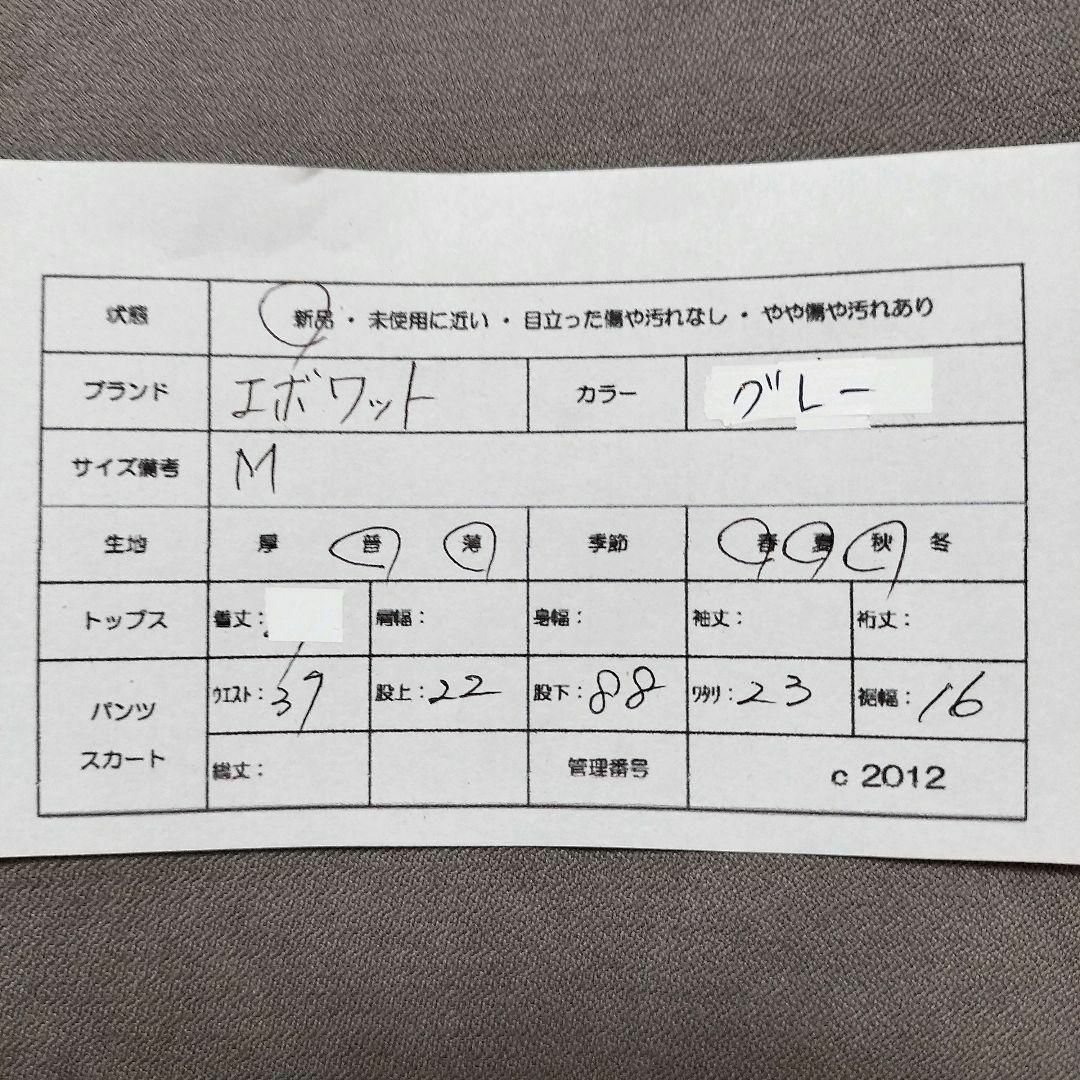 状態 新品・未使用に近い・目立った傷や汚れなし・やや傷や汚れあり
ブランド エボワット カラー グレー
サイズ備考 M
生地 厚 普 薄 季節 春 夏 秋 冬
トップス 着丈: 肩幅: 身幅: 袖丈: 裄丈:
パンツ スカート ウエスト:37 股上:22 股下:88 ワタリ:23 裾幅:16
総丈: 管理番号 c 2012